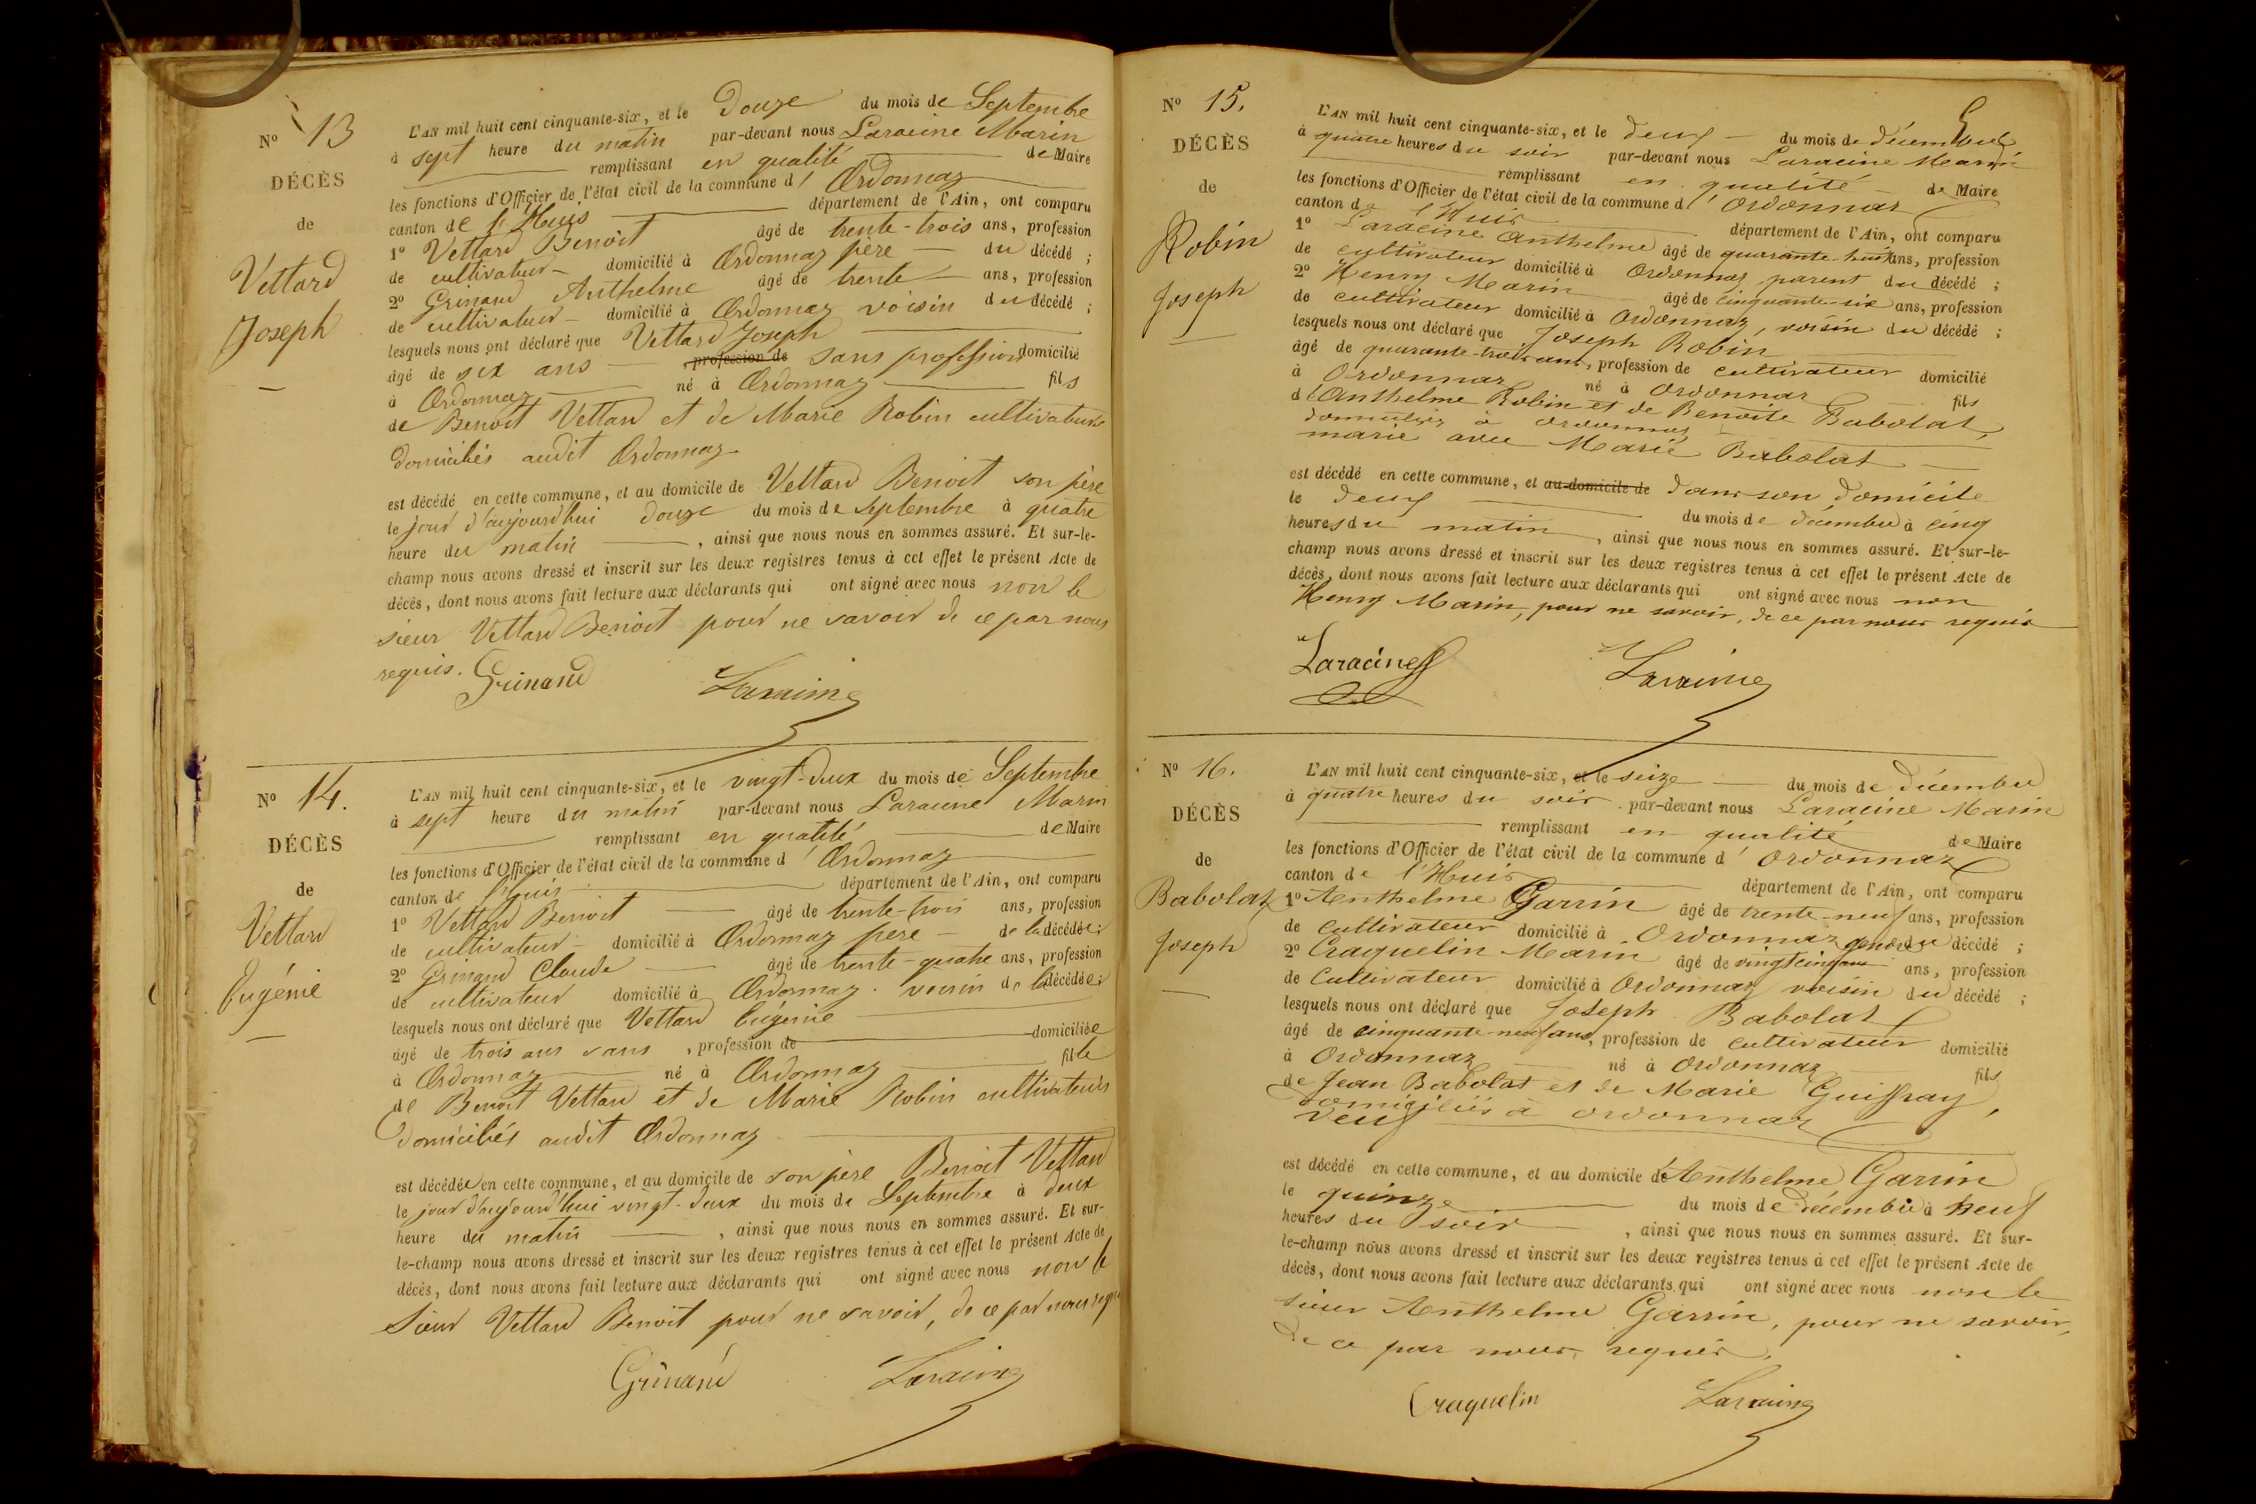 N° 13
DÉCÈS
de
Vettard
Joseph
L'AN mil huit cent cinquante-six, et le Douze du mois de Septembre
à sept heure du matin par-devant nous Laracine Marin
remplissant en qualité de Maire
les fonctions d'Officier de l'état civil de la commune d' Ordonnaz
canton de l'Huis département de l'Ain, ont comparu
1° Vettard Benoit âgé de trente-trois ans, profession
de cultivateur domicilié à Ordonnaz père du décédé ;
2° Grinand Anthelme âgé de trente ans, profession
de cultivateur domicilié à Ordonnaz voisin du décédé ;
lesquels nous ont déclaré que Vettard Joseph
âgé de six ans profession de sans profession domicilié
à Ordonnaz né à Ordonnaz fils
de Benoit Vettard et de Marie Robin cultivateurs
domiciliés audit Ordonnaz
est décédé en cette commune, et au domicile de Vettard Benoit son père
le jour d'aujourd'hui douze du mois de Septembre à quatre
heure du matin , ainsi que nous nous en sommes assuré. Et sur-le-
champ nous avons dressé et inscrit sur les deux registres tenus à cet effet le présent Acte de
décès, dont nous avons fait lecture aux déclarants qui ont signé avec nous non le
sieur Vettard Benoit pour ne savoir de ce par nous
requis.
Grinand Laracine
N° 14.
DÉCÈS
de
Vettard
Eugénie
L'AN mil huit cent cinquante-six, et le vingt-deux du mois de Septembre
à sept heure du matin par-devant nous Laracine Marin
remplissant en qualité de Maire
les fonctions d'Officier de l'état civil de la commune d' Ordonnaz
canton de l'huis département de l'Ain, ont comparu
1° Vettard Benoit âgé de trente-trois ans, profession
de cultivateur domicilié à Ordonnaz père de la décédée ;
2° Grinand Claude âgé de trente-quatre ans, profession
de cultivateur domicilié à Ordonnaz. voisin de la décédée ;
lesquels nous ont déclaré que Vettard Eugénie
âgé de trois ans sans , profession de domiciliée
à Ordonnaz né à Ordonnaz fille
de Benoit Vettard et de Marie Robin cultivateurs
domiciliés audit Ordonnaz
est décédée en cette commune, et au domicile de son père Benoit Vettard
le jour d'aujourd'hui vingt-deux du mois de Septembre à deux
heure du matin , ainsi que nous nous en sommes assuré. Et sur-
le-champ nous avons dressé et inscrit sur les deux registres tenus à cet effet le présent Acte de
décès, dont nous avons fait lecture aux déclarants qui ont signé avec nous non le
Sieur Vettard Benoit pour ne savoir, de ce par nous requis
Grinand Laracine
N° 15.
DÉCÈS
de
Robin
Joseph
L'AN mil huit cent cinquante-six, et le deux du mois de décembre
à quatre heures du soir par-devant nous Laracine Marin
remplissant en qualité de Maire
les fonctions d'Officier de l'état civil de la commune d' Ordonnaz
canton de l'Huis département de l'Ain, ont comparu
1° Laracine Anthelme âgé de quarante-huit ans, profession
de cultivateur domicilié à Ordonnaz parent du décédé ;
2° Henry Marin âgé de cinquante-six ans, profession
de cultivateur domicilié à Ordonnaz, voisin du décédé ;
lesquels nous ont déclaré que Joseph Robin
âgé de quarante-trois ans, profession de cultivateur domicilié
à Ordonnaz né à Ordonnaz fils
d'Anthelme Robin et de Benoite Babolat,
domiciliés à ordonnaz
marié avec Marie Babolat
est décédé en cette commune, et au domicile de dans son domicile
le deux du mois de décembre à cinq
heures du matin , ainsi que nous nous en sommes assuré. Et sur-le-
champ nous avons dressé et inscrit sur les deux registres tenus à cet effet le présent Acte de
décès, dont nous avons fait lecture aux déclarants qui ont signé avec nous non
Henry Marin, pour ne savoir, de ce par nous requis
Laracine Laracine
N° 16.
DÉCÈS
de
Babolat
Joseph
L'AN mil huit cent cinquante-six, et le seize du mois de décembre
à quatre heures du soir par-devant nous Laracine Marin
remplissant en qualité de Maire
les fonctions d'Officier de l'état civil de la commune d' Ordonnaz
canton de l'Huis département de l'Ain, ont comparu
1° Anthelme Garrin âgé de trente-neuf ans, profession
de cultivateur domicilié à Ordonnaz gendre du décédé ;
2° Craquelin Marin âgé de vingt cinq ans ans, profession
de Cultivateur domicilié à Ordonnaz voisin du décédé ;
lesquels nous ont déclaré que Joseph Babolat
âgé de cinquante-neuf ans, profession de cultivateur domicilié
à Ordonnaz né à Ordonnaz fils
de Jean Babolat et de Marie Guiffray,
domiciliés à ordonnaz
veuf
est décédé en cette commune, et au domicile de Anthelme Garrin
le quinze du mois de décembre à neuf
heures du soir , ainsi que nous nous en sommes assuré. Et sur-
le-champ nous avons dressé et inscrit sur les deux registres tenus à cet effet le présent Acte de
décès, dont nous avons fait lecture aux déclarants qui ont signé avec nous non le
sieur Anthelme Garrin, pour ne savoir,
de ce par nous requis.
Craquelin Laracine